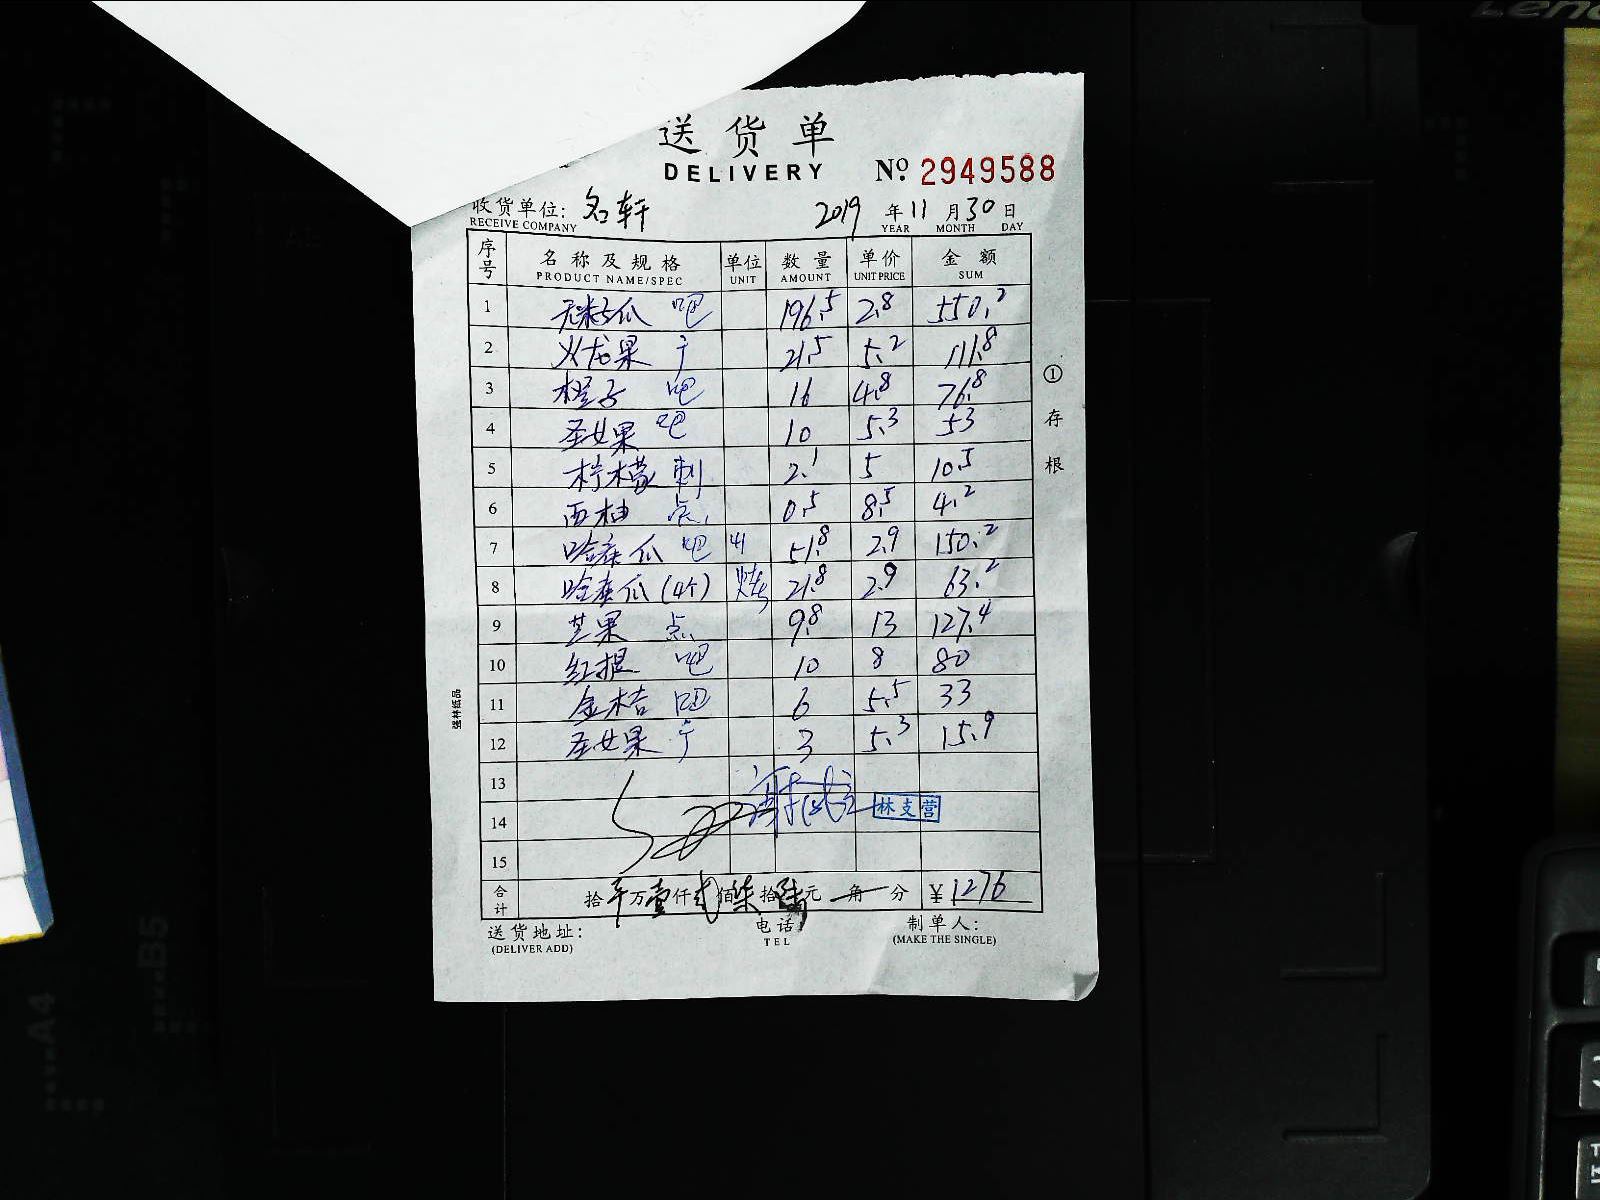 送货单
DELIVERY № 2949588
收货单位: 名轩 2019 年 11 月 30 日
RECEIVE COMPANY YEAR MONTH DAY
序号 名称及规格 单位 数量 单价 金额
PRODUCT NAME/SPEC UNIT AMOUNT UNIT PRICE SUM
1 无籽瓜 吧 196.5 2.8 550.2
2 火龙果 21.5 5.2 111.8
3 橙子 吧 16 4.8 76.8
4 圣女果 吧 10 5.3 53
5 柠檬 刺 2.1 5 10.5
6 西柚 点 0.5 8.5 4.2
7 哈密瓜 吧 51.8 2.9 150.2
8 哈密瓜(4个) 21.8 2.9 63.2
9 芒果 点 9.8 13 127.4
10 红提 吧 10 8 80
11 金桔 吧 6 5.5 33
12 圣女果 3 5.3 15.9
13
14 林支营
15
合计 拾 万壹仟贰佰柒拾陆元 角 分 ¥1276
送货地址: 电话: 制单人:
(DELIVER ADD) TEL (MAKE THE SINGLE)
①存根
强林纸品
A4
B5
Leno